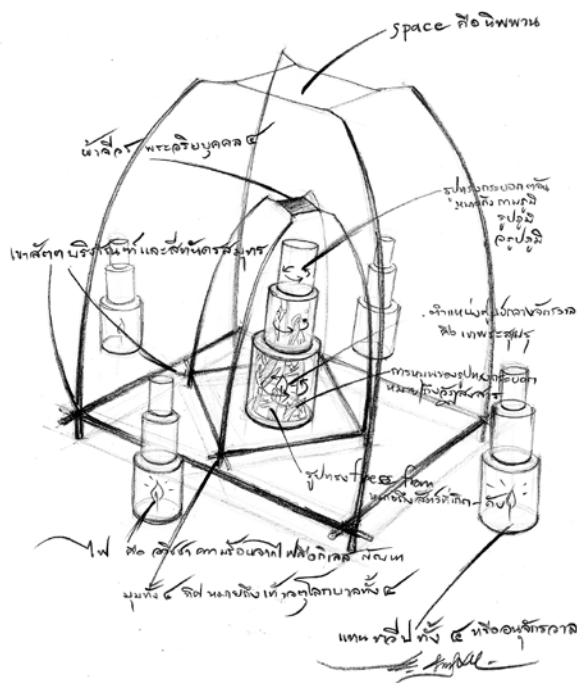 space คือ นิพพาน
ผ้าจีวร พระอริยบุคคล ๔
รูปทรงกระบอก ๓ ชั้น
หมายถึง กามภูมิ
รูปภูมิ
อรูปภูมิ
เขาสัตตบริภัณฑ์ และสีทันดรสมุทร
ตำแหน่งศูนย์กลางจักรวาล
คือ เขาพระสุเมรุ
การหมุนของรูปทรงกระบอก
หมายถึงวัฏสงสาร
รูปทรง free from
หมายถึงสัตว์ที่เกิด - ดับ
ไฟ คือ อวิชชา ความร้อนจากไฟคือกิเลส ตัณหา
มุมทั้ง ๔ ทิศ หมายถึงท้าวจตุโลกบาลทั้ง ๔
แทน ทวีปทั้ง ๔ หรืออนุจักรวาล